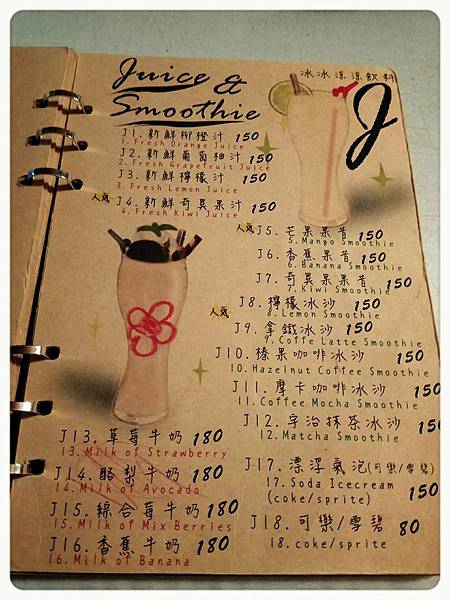 Juice &
Smoothie
冰冰涼涼飲料
J
J1.新鮮柳橙汁 150
1.Fresh Orange Juice
J2.新鮮葡萄柚汁 150
2.Fresh Grapefruit Juice
J3.新鮮檸檬汁 150
3.Fresh Lemon Juice
人氣 J4.新鮮奇異果汁 150
4.Fresh Kiwi Juice
人氣 J5.芒果果昔 150
5.Mango Smoothie
J6.香蕉果昔 150
6.Banana Smoothie
J7.奇異果果昔 150
7.Kiwi Smoothie
人氣 J8.檸檬冰沙 150
8.Lemon Smoothie
J9.拿鐵冰沙 150
9.Coffe Latte Smoothie
J10.榛果咖啡冰沙 150
10.Hazelnut Coffee Smoothie
J11.摩卡咖啡冰沙 150
11.Coffee Mocha Smoothie
J12.宇治抹茶冰沙
12.Matcha Smoothie
J13.草莓牛奶 180
13.Milk of Strawberry
J14.酪梨牛奶 180
14.Milk of Avocado
J15.綜合莓牛奶 180
15.Milk of Mix Berries
J16.香蕉牛奶 180
16.Milk of Banana
J17.漂浮氣泡(可樂/雪碧)
17.Soda Icecream
(coke/sprite) 150
J18.可樂/雪碧 80
18.coke/sprite